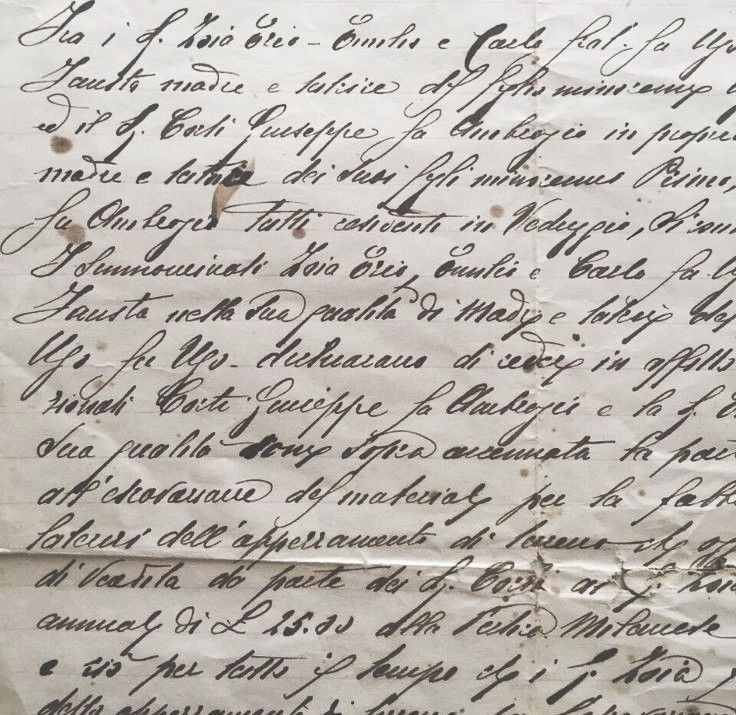 Tra i S. Zoia Ezio - Emilio e Carlo frat. fu Ugo
Fausta madre e tutrice del figlio minorenne
ed il S. Corti Giuseppe fu Ambrogio in proprio
madre e tutrice dei suoi figli minorenni Primo,
fu Ambrogio tutti residenti in Veduggio, si con
I summominati Zoia Ezio, Emilio e Carlo fu U
Fausta nella sua qualità di Madre e tutrice del
Ugo fu Ugo - dichiarano di cedere in affitto
zionati Corti Giuseppe fu Ambrogio e la S.
sua qualità come sopra accennata la parte
all'escavazione del materiale per la fabb
laterizi dell'apperzamento di terreno che
di vendita da parte dei S. Corti ai S. Zoia
annuale di £ 25.00 alla Pertica Milanese
e ciò per tutto il tempo che i S. Zoia
dello apperzamento di terreno